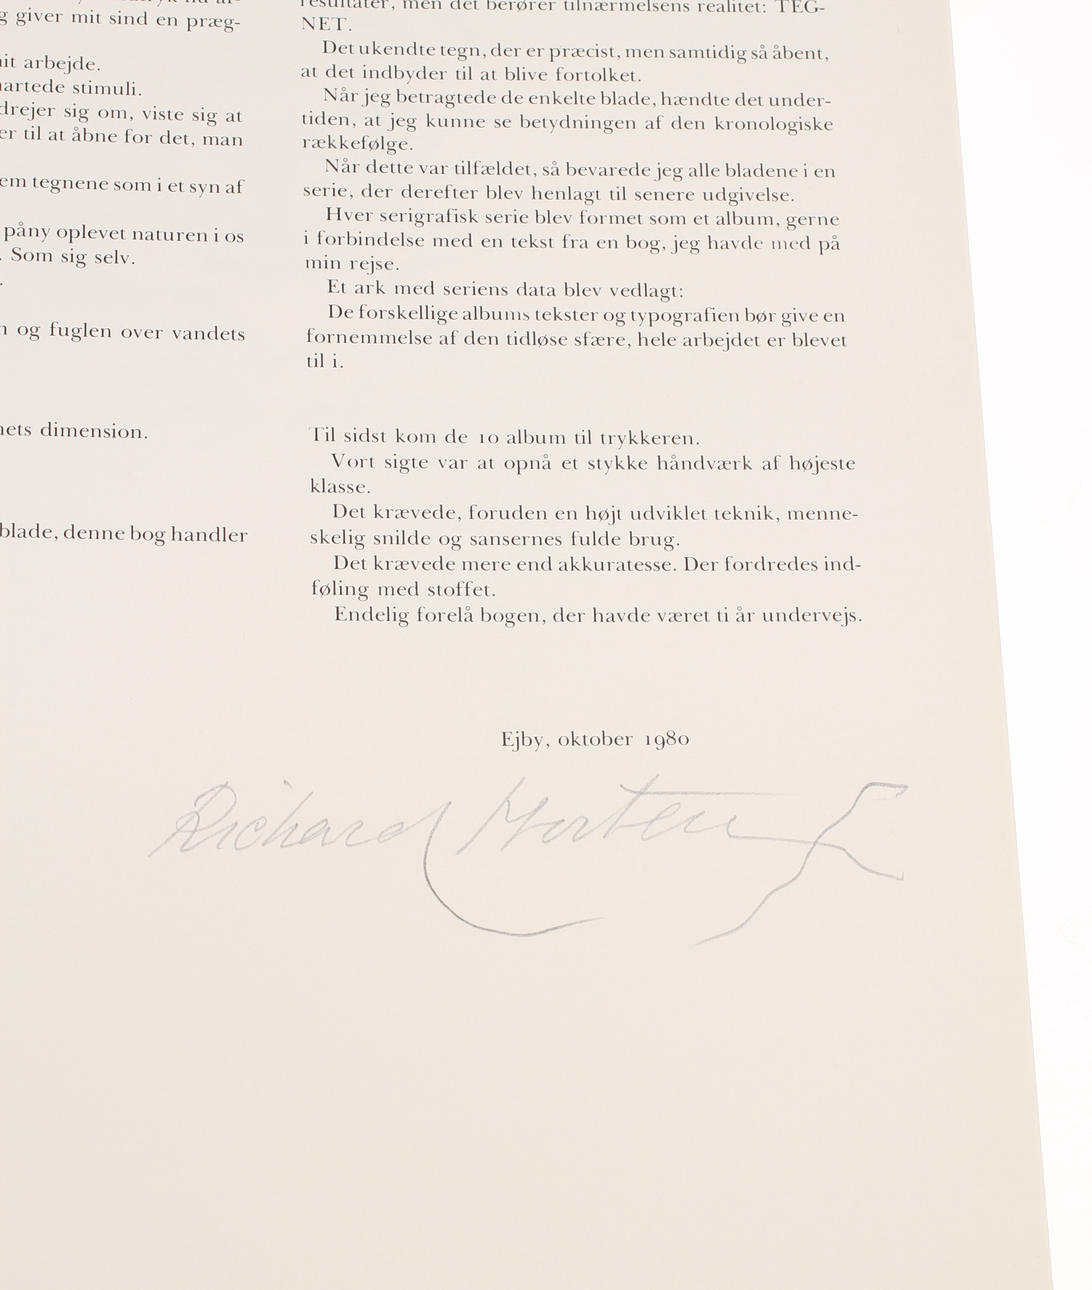 giver mit sind en præg-
mit arbejde.
artede stimuli.
drejer sig om, viste sig at
er til at åbne for det, man
em tegnene som i et syn af
påny oplevet naturen i os
. Som sig selv.
.
og fuglen over vandets
ets dimension.
blade, denne bog handler
resultater, men det berører tilnærmelsens realitet: TEG-
NET.
Det ukendte tegn, der er præcist, men samtidig så åbent,
at det indbyder til at blive fortolket.
Når jeg betragtede de enkelte blade, hændte det under-
tiden, at jeg kunne se betydningen af den kronologiske
rækkefølge.
Når dette var tilfældet, så bevarede jeg alle bladene i en
serie, der derefter blev henlagt til senere udgivelse.
Hver serigrafisk serie blev formet som et album, gerne
i forbindelse med en tekst fra en bog, jeg havde med på
min rejse.
Et ark med seriens data blev vedlagt:
De forskellige albums tekster og typografien bør give en
fornemmelse af den tidløse sfære, hele arbejdet er blevet
til i.
Til sidst kom de 10 album til trykkeren.
Vort sigte var at opnå et stykke håndværk af højeste
klasse.
Det krævede, foruden en højt udviklet teknik, menne-
skelig snilde og sansernes fulde brug.
Det krævede mere end akkuratesse. Der fordredes ind-
føling med stoffet.
Endelig forelå bogen, der havde været ti år undervejs.
Ejby, oktober 1980
Richard Mortensen